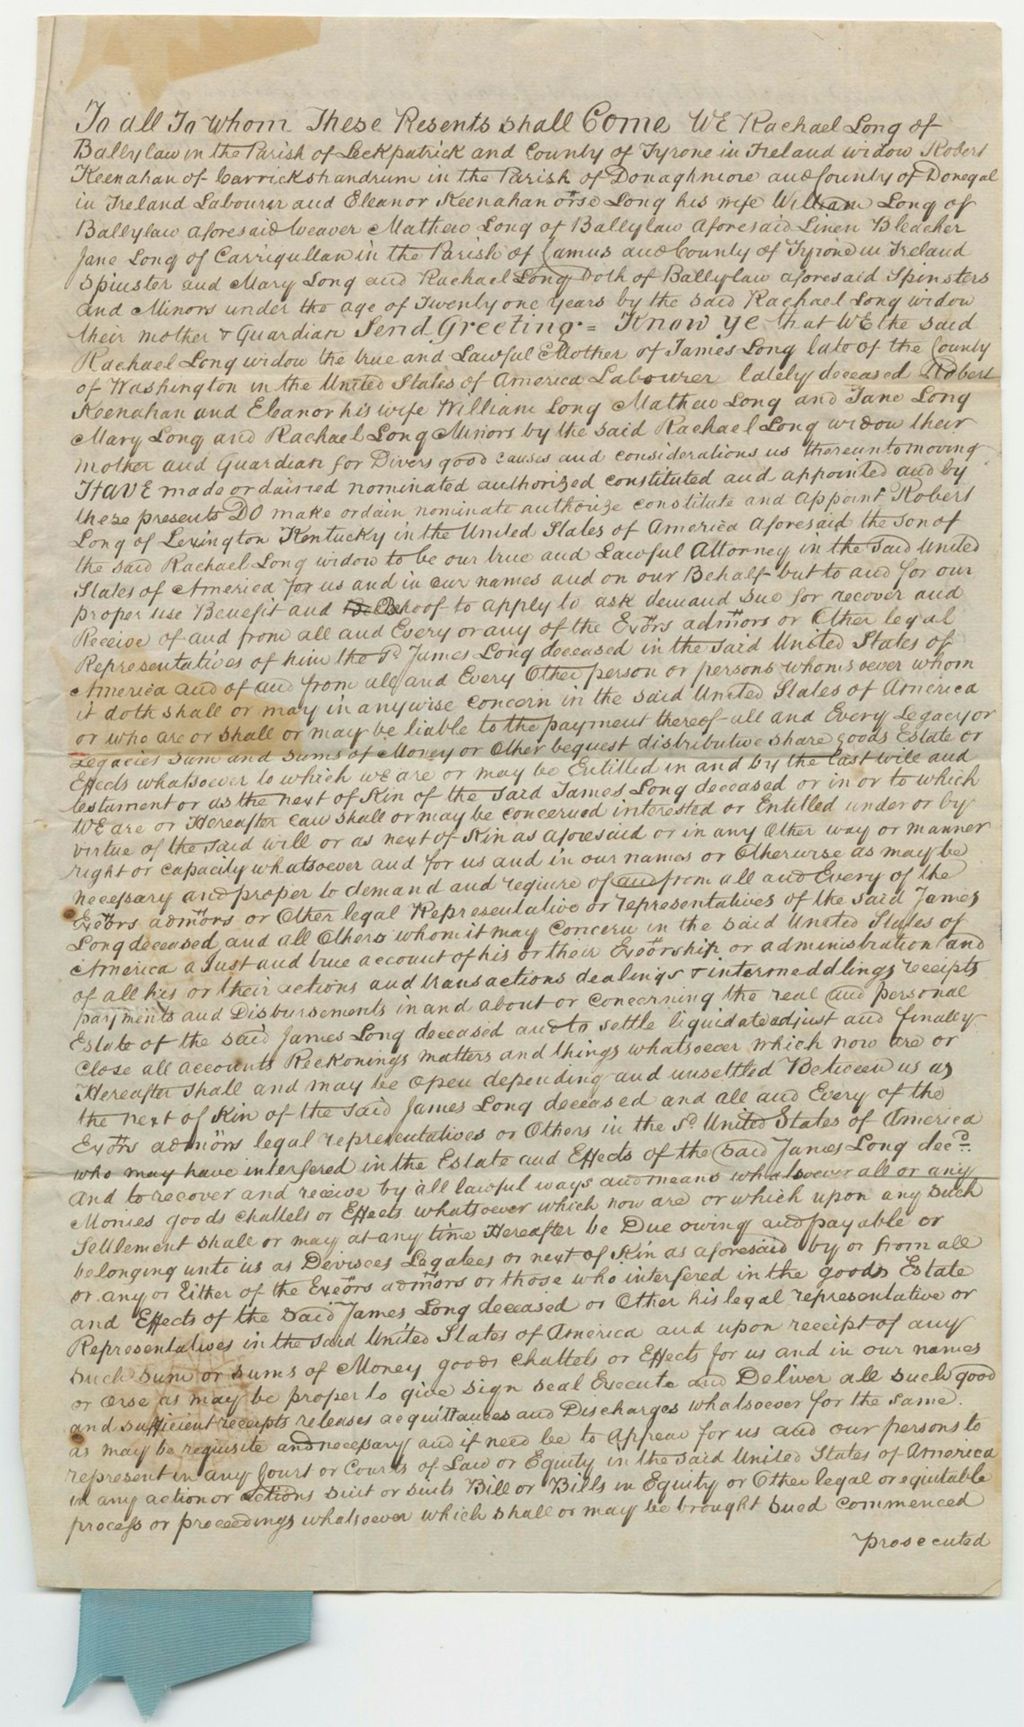 To all To whom These Resents shall Come WE Rachael Long of
Ballylaw in the Parish of Leckpatrick and County of Tyrone in Ireland widow Robert
Keenahan of Carrickshandrum in the Parish of Donaghmore and County of Donegal
in Ireland Labourer and Eleanor Keenahan orse Long his wife William Long of
Ballylaw aforesaid Weaver Mathew Long of Ballylaw Aforesaid Linen Bleacher
Jane Long of Carrigullaw in the Parish of Camus and County of Tyrone in Ireland
Spinster and Mary Long and Rachael Long both of Ballylaw aforesaid Spinsters
and Minors under the age of Twenty one years by the said Rachael Long widow
their mother & Guardian Send Greeting = Know ye that WE the said
Rachael Long widow the true and Lawful Mother of James Long late of the County
of Washington in the United States of America Labourer lately deceased Robert
Keenahan and Eleanor his wife William Long Mathew Long and Jane Long
Mary Long and Rachael Long Minors by the said Rachael Long widow their
mother and Guardian for Divers good causes and considerations us thereunto moving
HAVE made ordained nominated authorized constituted and appointed and by
these presents DO make ordain nominate authorize constitute and appoint Robert
Long of Lexington Kentucky in the United States of America aforesaid the son of
the said Rachael Long widow to be our true and Lawful Attorney in the said United
States of America for us and in our names and on our Behalf but to and for our
proper use Benefit and Behoof to apply to ask demand sue for recover and
Receive of and from all and Every or any of the Exors admors or Other legal
Representatives of him the sd James Long deceased in the said United States of
America and of and from all and Every Other person or persons whomsoever whom
it doth shall or may in anywise concern in the said United States of America
or who are or shall or may be liable to the payment thereof all and Every Legacy or
Legacies Sum and Sums of Money or Other bequest distributive share goods Estate or
Effects whatsoever to which we are or may be Entitled in and by the Last will and
testament or as the next of Kin of the said James Long deceased or in or to which
WE are or Hereafter can shall or may be concerned interested or Entitled under or by
virtue of the said will or as next of Kin as aforesaid or in any Other way or manner
right or capacity whatsoever and for us and in our names or Otherwise as may be
necessary and proper to demand and reqiure of and from all and Every of the
Exors admors or Other legal Representative or representatives of the said James
Long deceased and all Others whom it may Concern in the said United States of
America a Just and true account of his or their Exorship or administration and
of all his or their actions and transactions dealings & intermeddlings receipts
payments and Disbursements in and about or concerning the real and personal
Estate of the said James Long deceased and to settle liquidate adjust and finally
Close all accounts Reckonings matters and things whatsoever which now are or
Hereafter shall and may be open depending and unsettled Between us as
the next of Kin of the said James Long deceased and all and Every of the
Exors admors legal representatives or Others in the sd United States of America
who may have interfered in the Estate and Effects of the said James Long decd
And to recover and receive by all lawful ways and means whatsoever all or any
Monies goods chattels or Effects whatsoever which now are or which upon any such
Settlement shall or may at any time Hereafter be Due owing and payable or
belonging unto us as Devisees Legatees or next of Kin as aforesaid by or from all
or any or Either of the Exors admors or those who interfered in the goods Estate
and Effects of the said James Long deceased or Other his legal representative or
Representatives in the said United States of America and upon receipt of any
such Sum or Sums of Money goods chattels or Effects for us and in our names
or orse as may be proper to give sign seal Execute and Deliver all such good
and sufficient receipts releases acquittances and Discharges whatsoever for the same
as may be requisite and necessary and if need be to Appear for us and our persons to
represent in any Court or Courts of Law or Equity in the said United States of America
in any action or actions suit or suits Bill or Bills in Equity or Other legal or equitable
process or proceedings whatsoever which shall or may be brought sued commenced
prosecuted